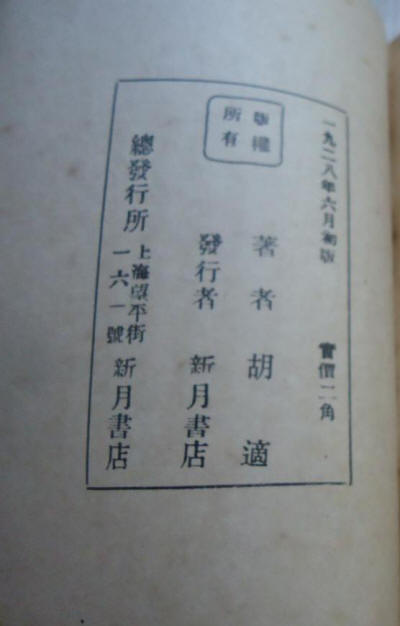 一九二八年六月初版 實價二角
版權
所有
著者 胡適
發行者 新月書店
總發行所 上海望平街一六一號 新月書店